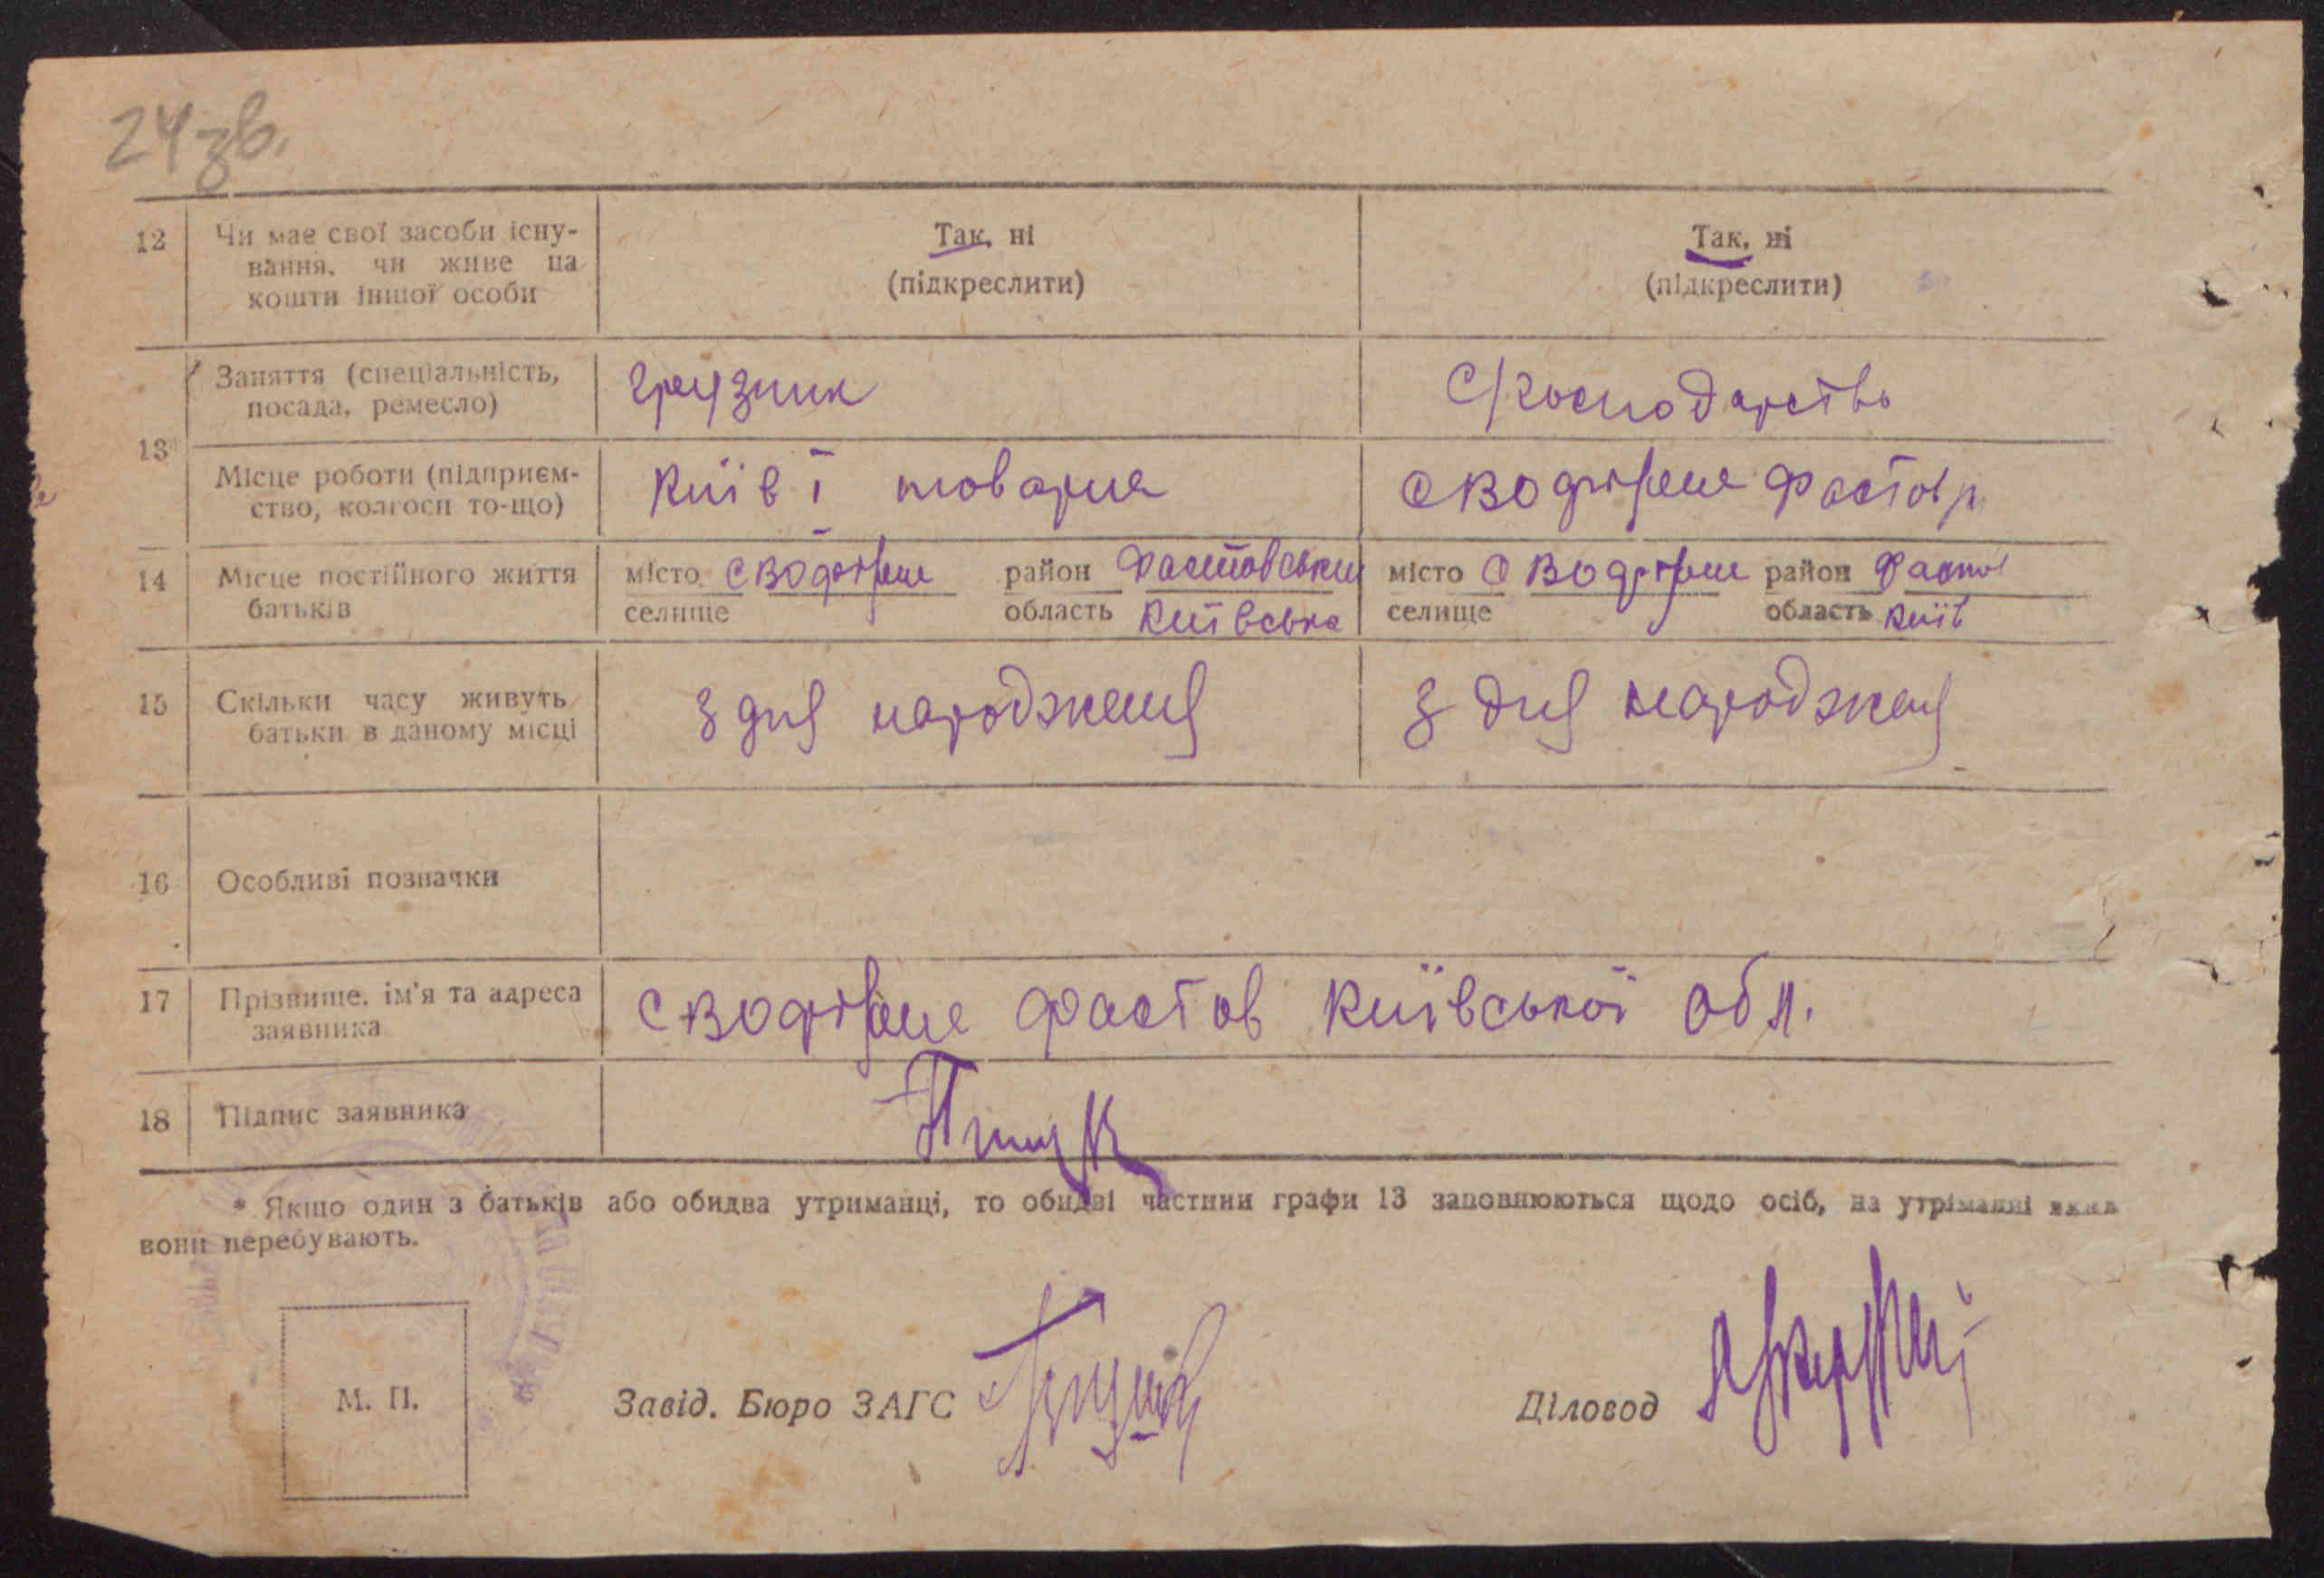 24зв.
12
Чи має свої засоби існу-
вання, чи живе на
кошти іншої особи
Так, ні
(підкреслити)
Так, ні
(підкреслити)
13*
Заняття (спеціальність,
посада, ремесло)
грузчик
С/господарство
Місце роботи (підприєм-
ство, колгосп то-що)
Київ І товарна
Фастов р
14
Місце постійного життя
батьків
місто
селище
район Фастовський
область Київська
місто
селище
район Фастов
область Київ
15
Скільки часу живуть
батьки в даному місці
З дня народження
З дня народжен
16
Особливі позначки
17
Прізвище, ім'я та адреса
заявника
Фастов Київської обл.
18
Підпис заявника
* Якщо один з батьків або обидва утриманці, то обидві частини графи 13 заповнюються щодо осіб, на утріманні яких
вони перебувають.
М. П.
Завід. Бюро ЗАГС
Діловод